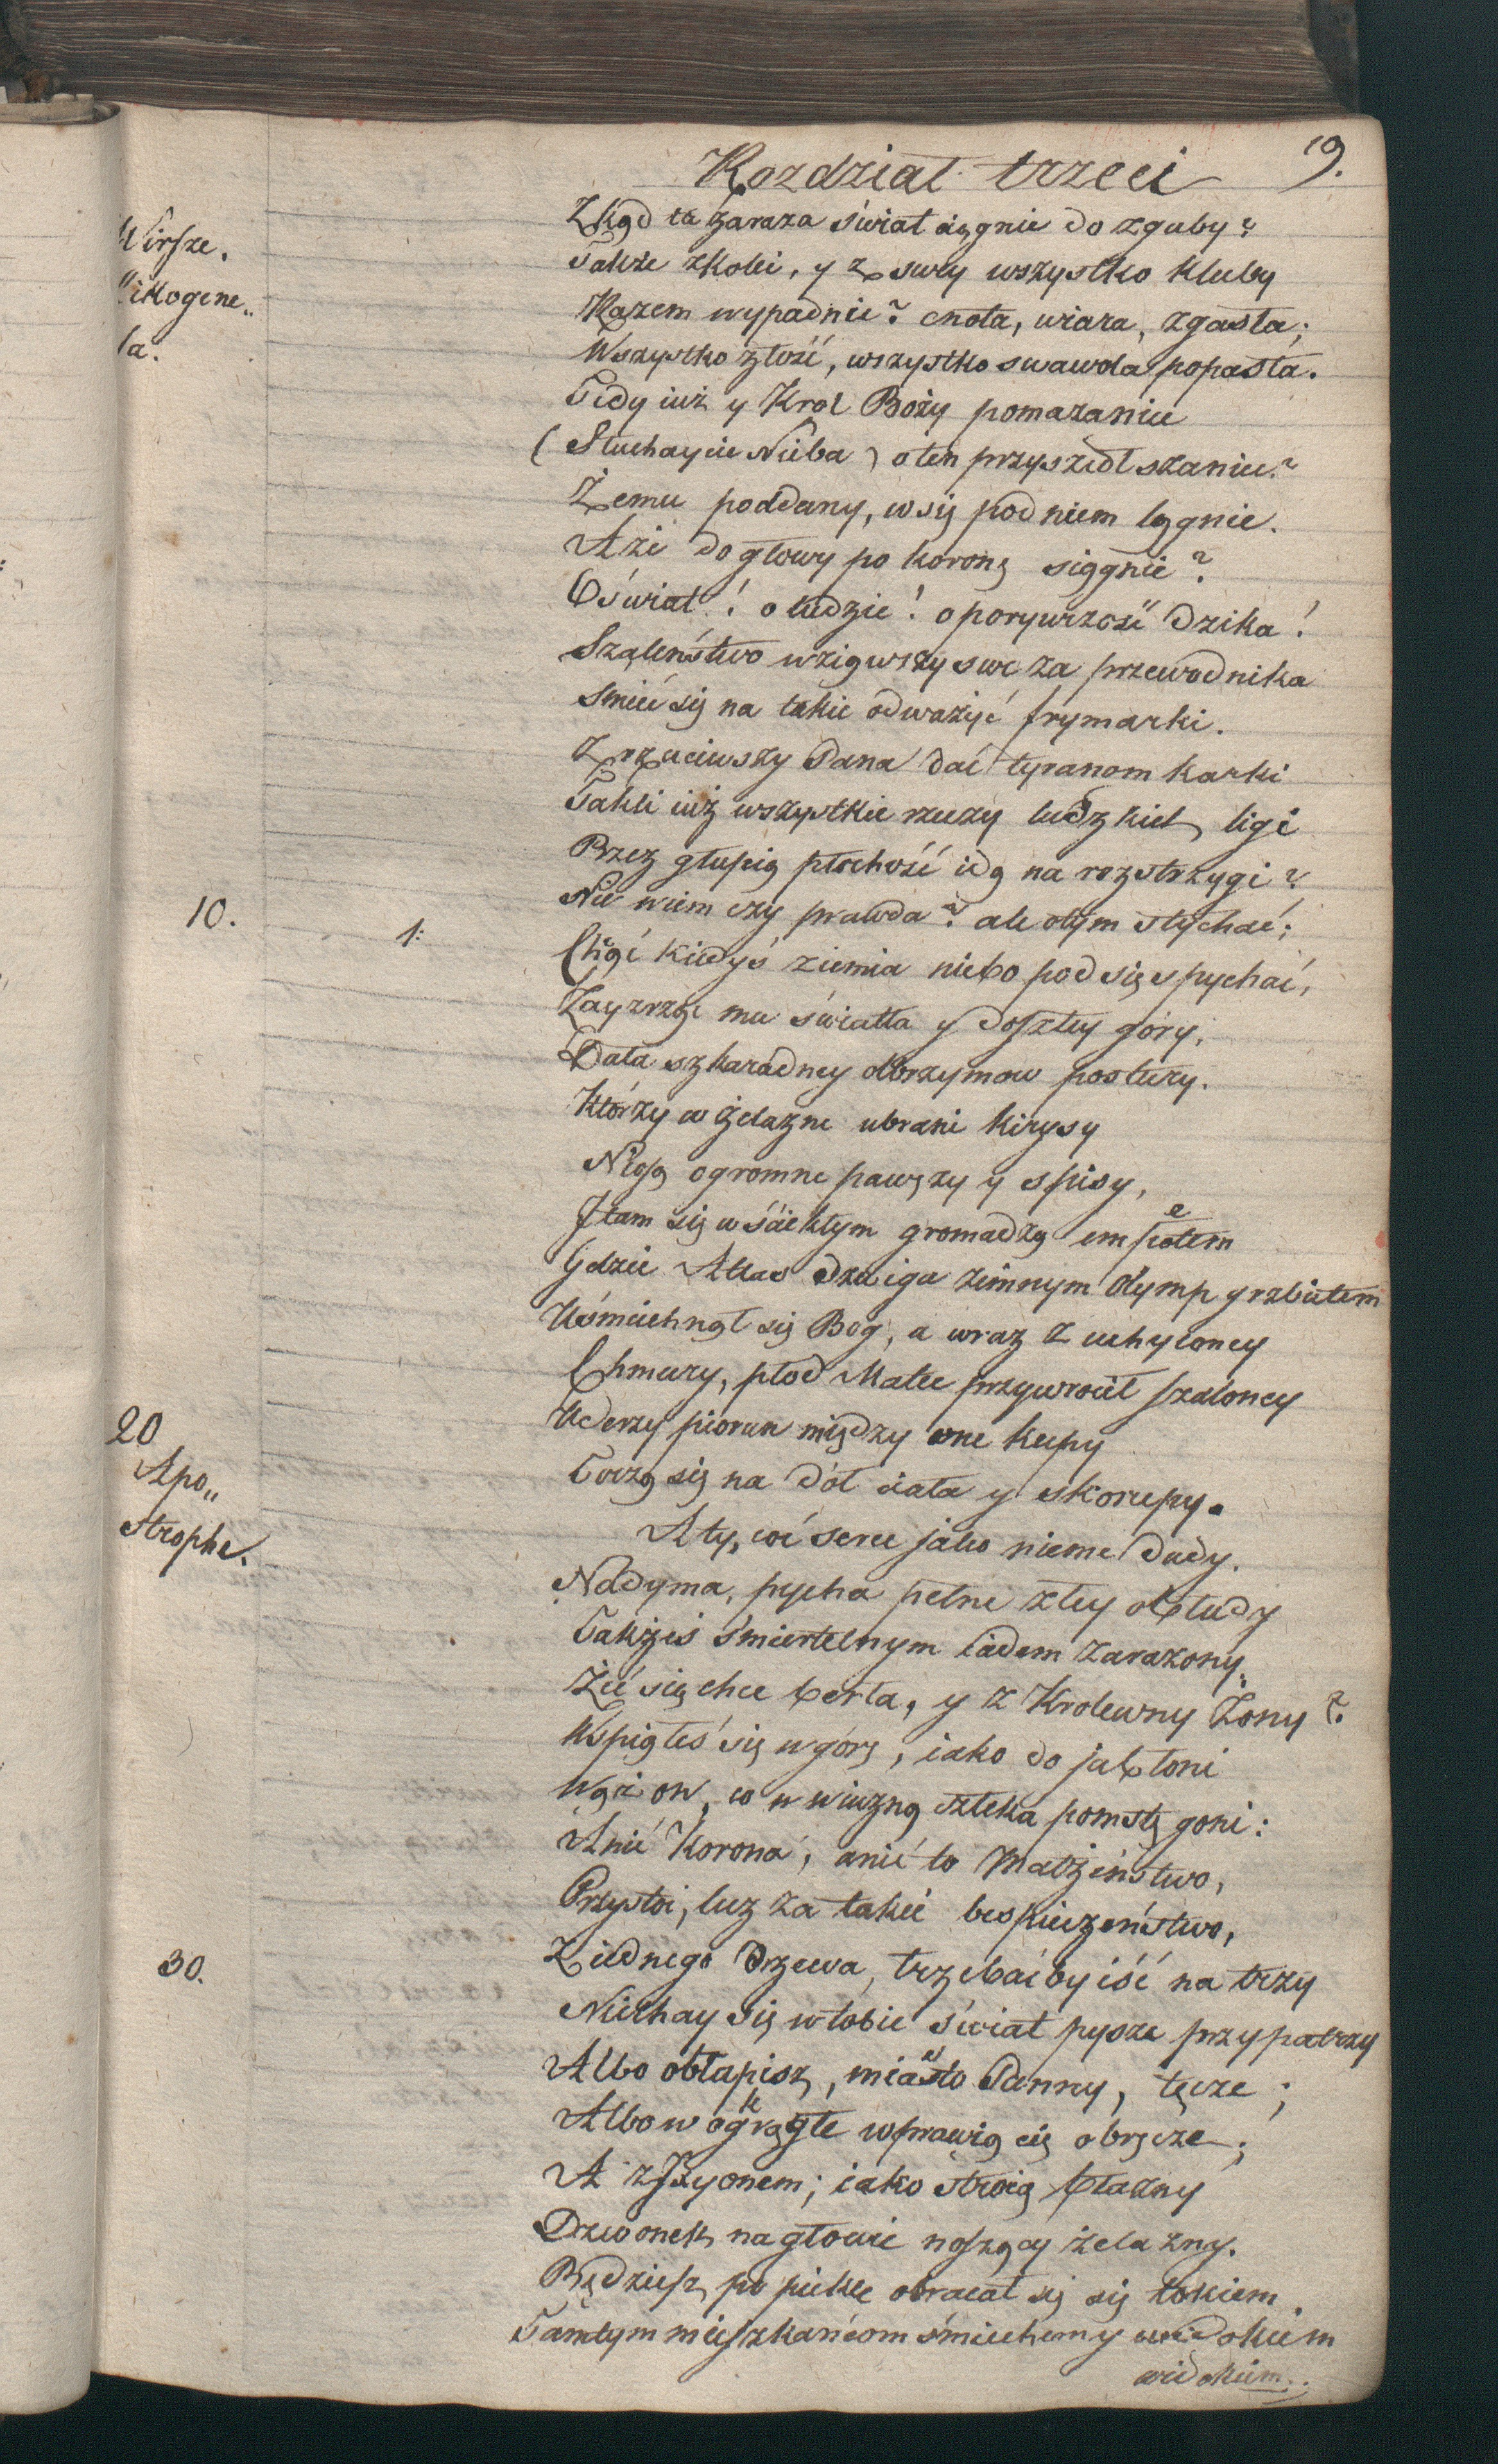 19.
Rozdział trzeci
Wirsze.
Nikogene„
la.
Zkąd ta zaraza świat ciągnie do zguby?
Także zkolei, y z swey wszystko kluby
Razem wypadnie? cnota, wiara, zgasła;
Wszystko złość, wszystko swawola popasła.
Tedy iuż y Krol Boży pomazaniec
(Słuchaycie Nieba) o ten przyszedł szaniec?
Żemu poddany, wsię pod niem lęgnie.
Aże do głowy po koronę sięgnie?
O świat! o ludzie! o porywczość dzika!
Szaleństwo wziąwszy swe za przewodnika
Smieć się na takie odważyć frymarki.
Zrzuciwszy Pana dać tyranom karki
Takli iuż wszystkie rzeczy ludzkich ligi
Przez głupią płochość idą na rozstrzygi?
10.
1:
Nie wiem czy prawda? ale otym słychać;
Chcąć kiedyś ziemia niebo pod się spychać,
Zayzrząc mu światła y doszłey góry,
Dała szkaradney olbrzymow postury.
Którzy w żelazne ubrani kirysy
Niosą ogromne pawęzy y spisy,
I tam się wściekłym gromadzą empetem
Gdzie Atlas dzwiga zimnym Olymp grzbietem
Uśmiechnął się Bog, a wraz z uchyloney
Chmury, płod Matce przywrocił szaloney
Uderzy piorun między one kupy
Toczą się na dół ciała y skorupy.
20
Apo„
strophe.
A ty, coć serce jako nieme dudy.
Nadyma, pycha pełne złey obłudy
Takżeś śmiertelnym iadem zarażony,
Żeć się chce berła, y z Krolewny Żony?
Wspiąłeś się w górę, iako do jabłoni
Wąż ow, co w wieczną człeka pomstę goni:
Anić Korona, anić to Małżeństwo,
Przystoi, lecz za takie bespieczeństwo,
30.
Z iednego drzewa, trzebaćby iść na trzy
Niechay się w tobie świat pysze przypatrzy
Albo obłapisz, miasto Panny, tęcze;
Albo w okrągłe wprawią cię obręcze;
A z Ixyonem; iako stroią błazny
Dzwonek na głowie noszący żelazny.
Będziesz po piekle obracał się się tokiem
Tamtym mieszkańcom śmiechemy widokiem
widokiem.